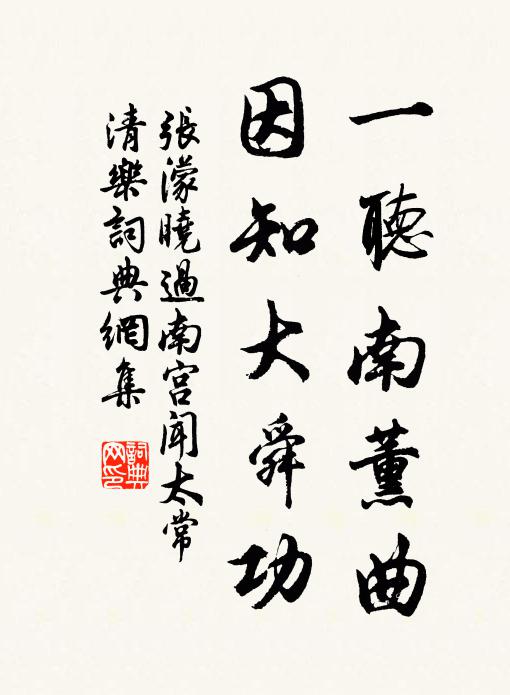 一聽南薰曲
因知大舜功
張濛曉過南宮聞太常
清樂詞典網集
詞典
网印